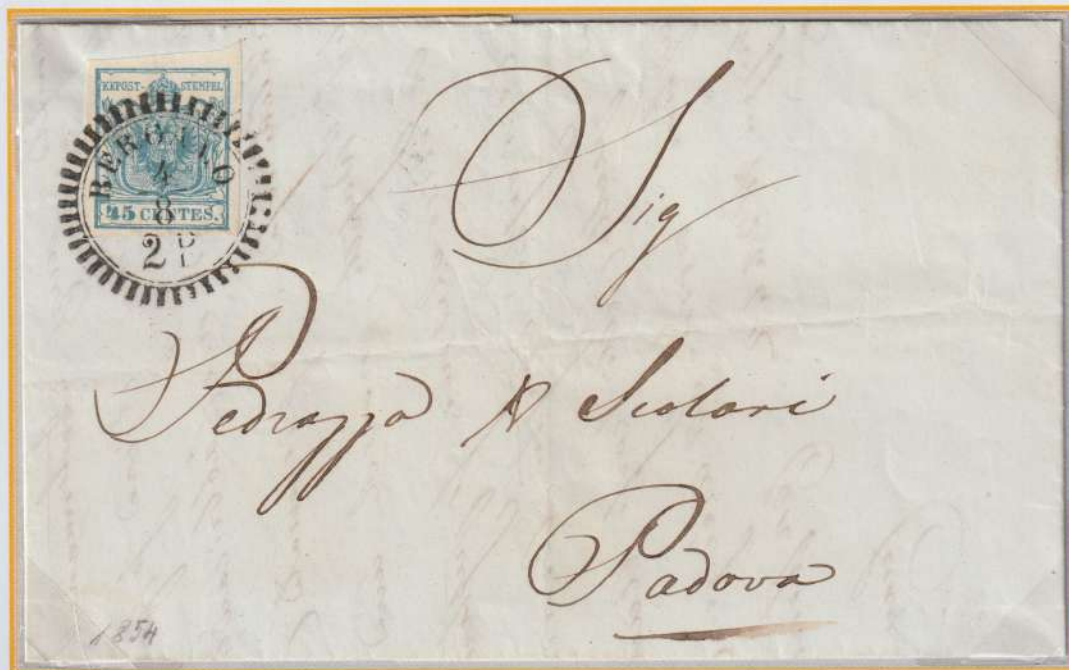 KKPOST-STEMPEL
BERGAMO
4
8
2 P
45 CENTES.
Sig
Pedrazza & Scolari
Padova
1854